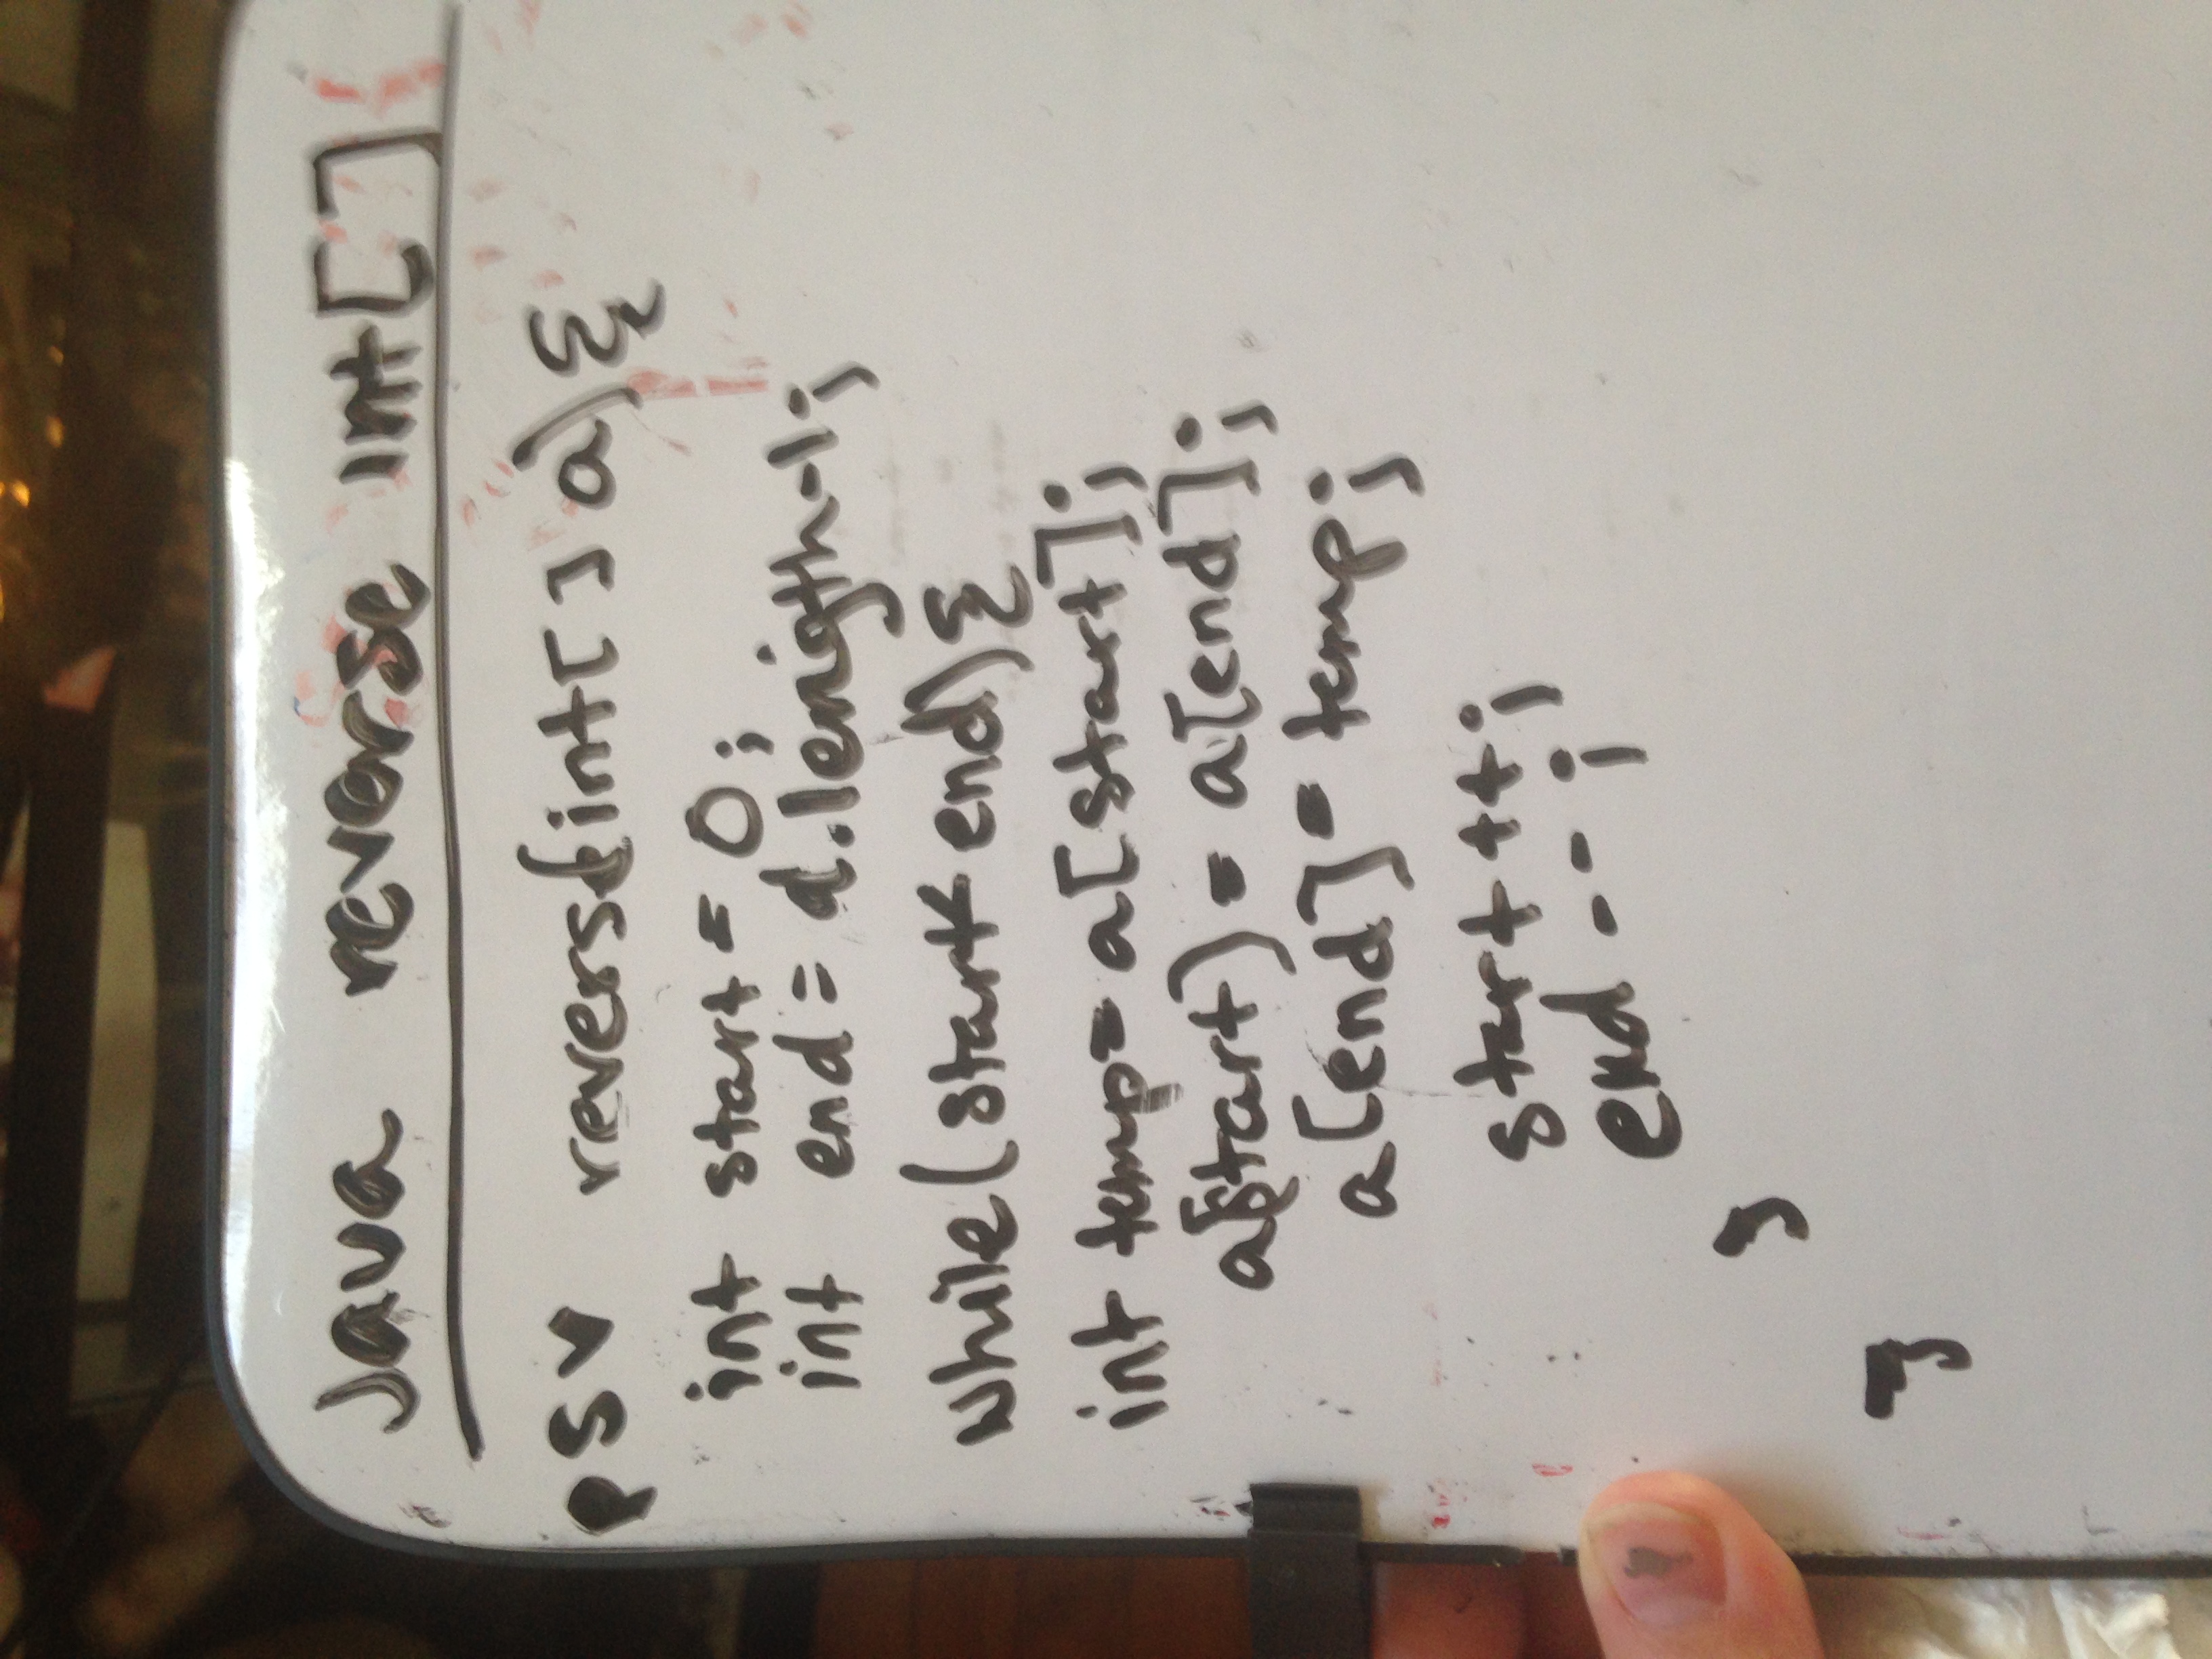 Java reverse int[]
psv reverse(int[] a){
int start = 0;
int end = a.length-1;
while(start< end){
int temp= a[start];
a[start] = a[end];
a[end] = temp;
start ++;
end --;
}
}